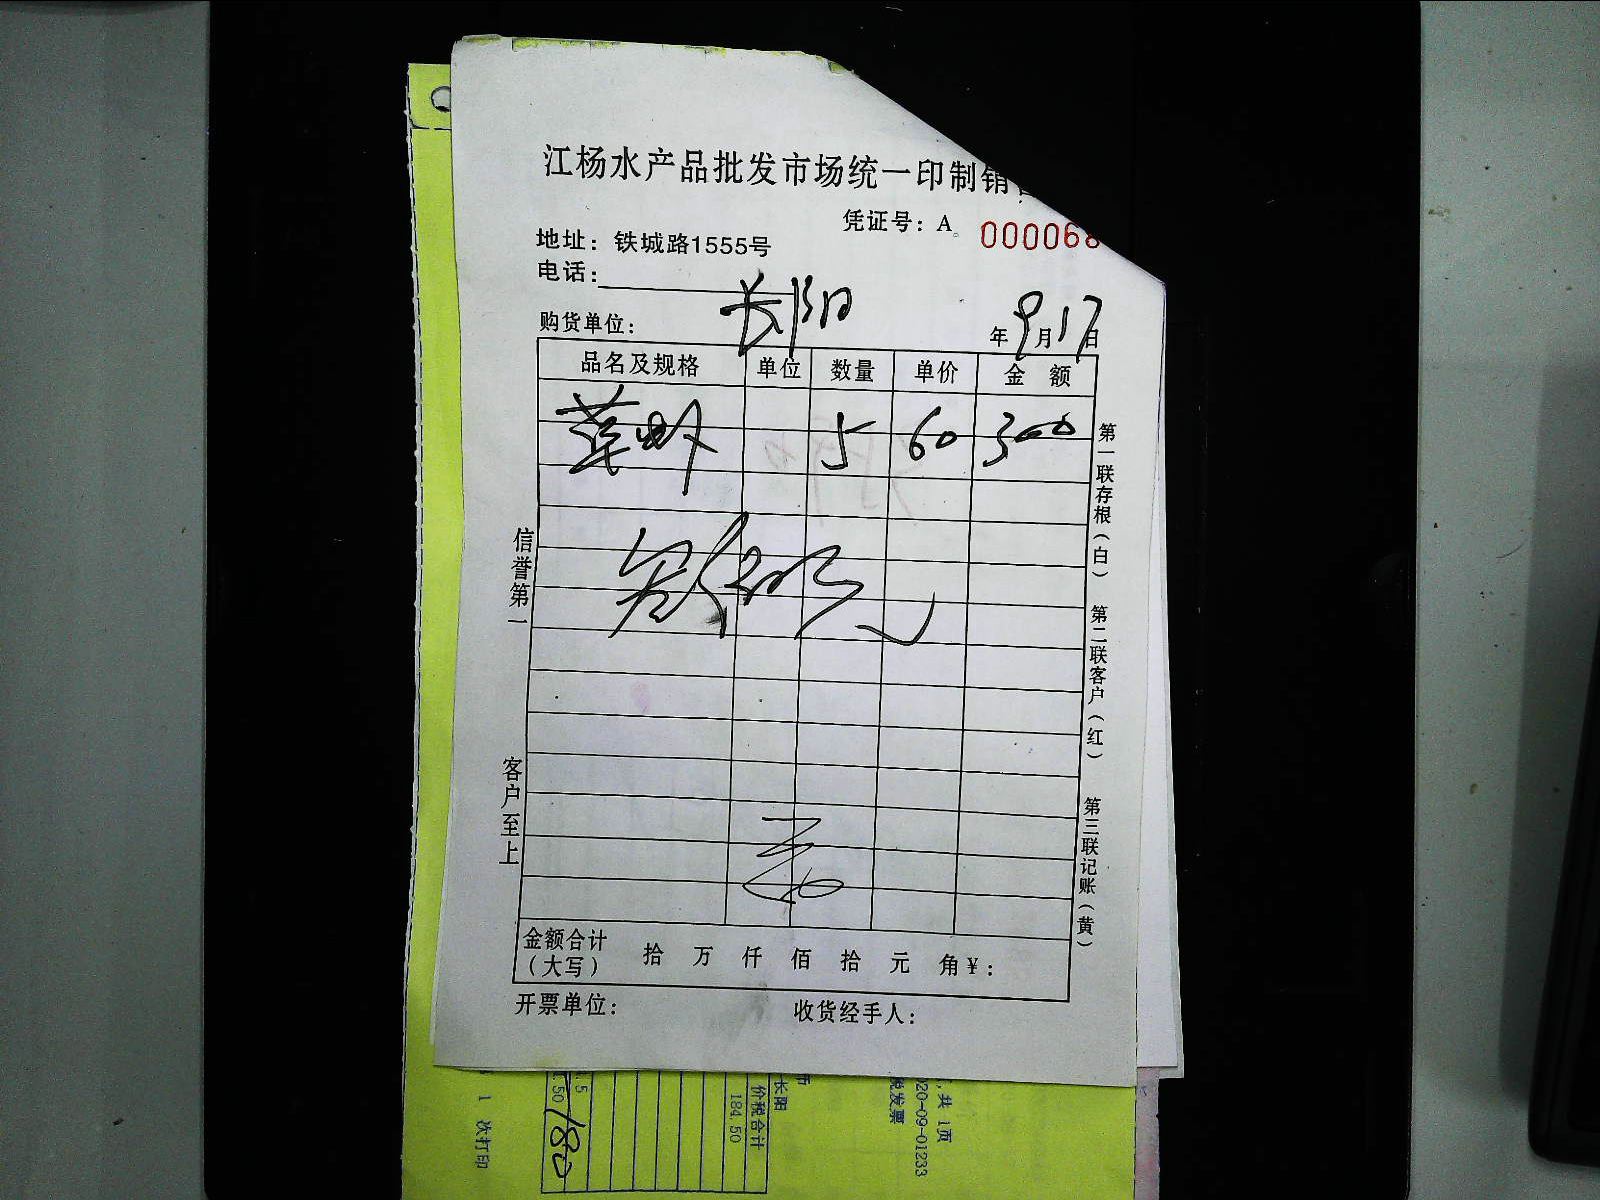 江杨水产品批发市场统一印制销
凭证号：A 000068
地址：铁城路1555号
电话：
购货单位： 长阳 年 9 月 17 日
品名及规格 单位 数量 单价 金 额
草虾 5 60 300
信誉第一
客户至上
第一联存根（白）
第二联客户（红）
第三联记账（黄）
金额合计（大写） 拾 万 仟 佰 拾 元 角 ¥：
开票单位： 收货经手人：
共 1页
020-09-01233
税发票
长阳
价税合计
184.50
.5
.50
180
1 次打印